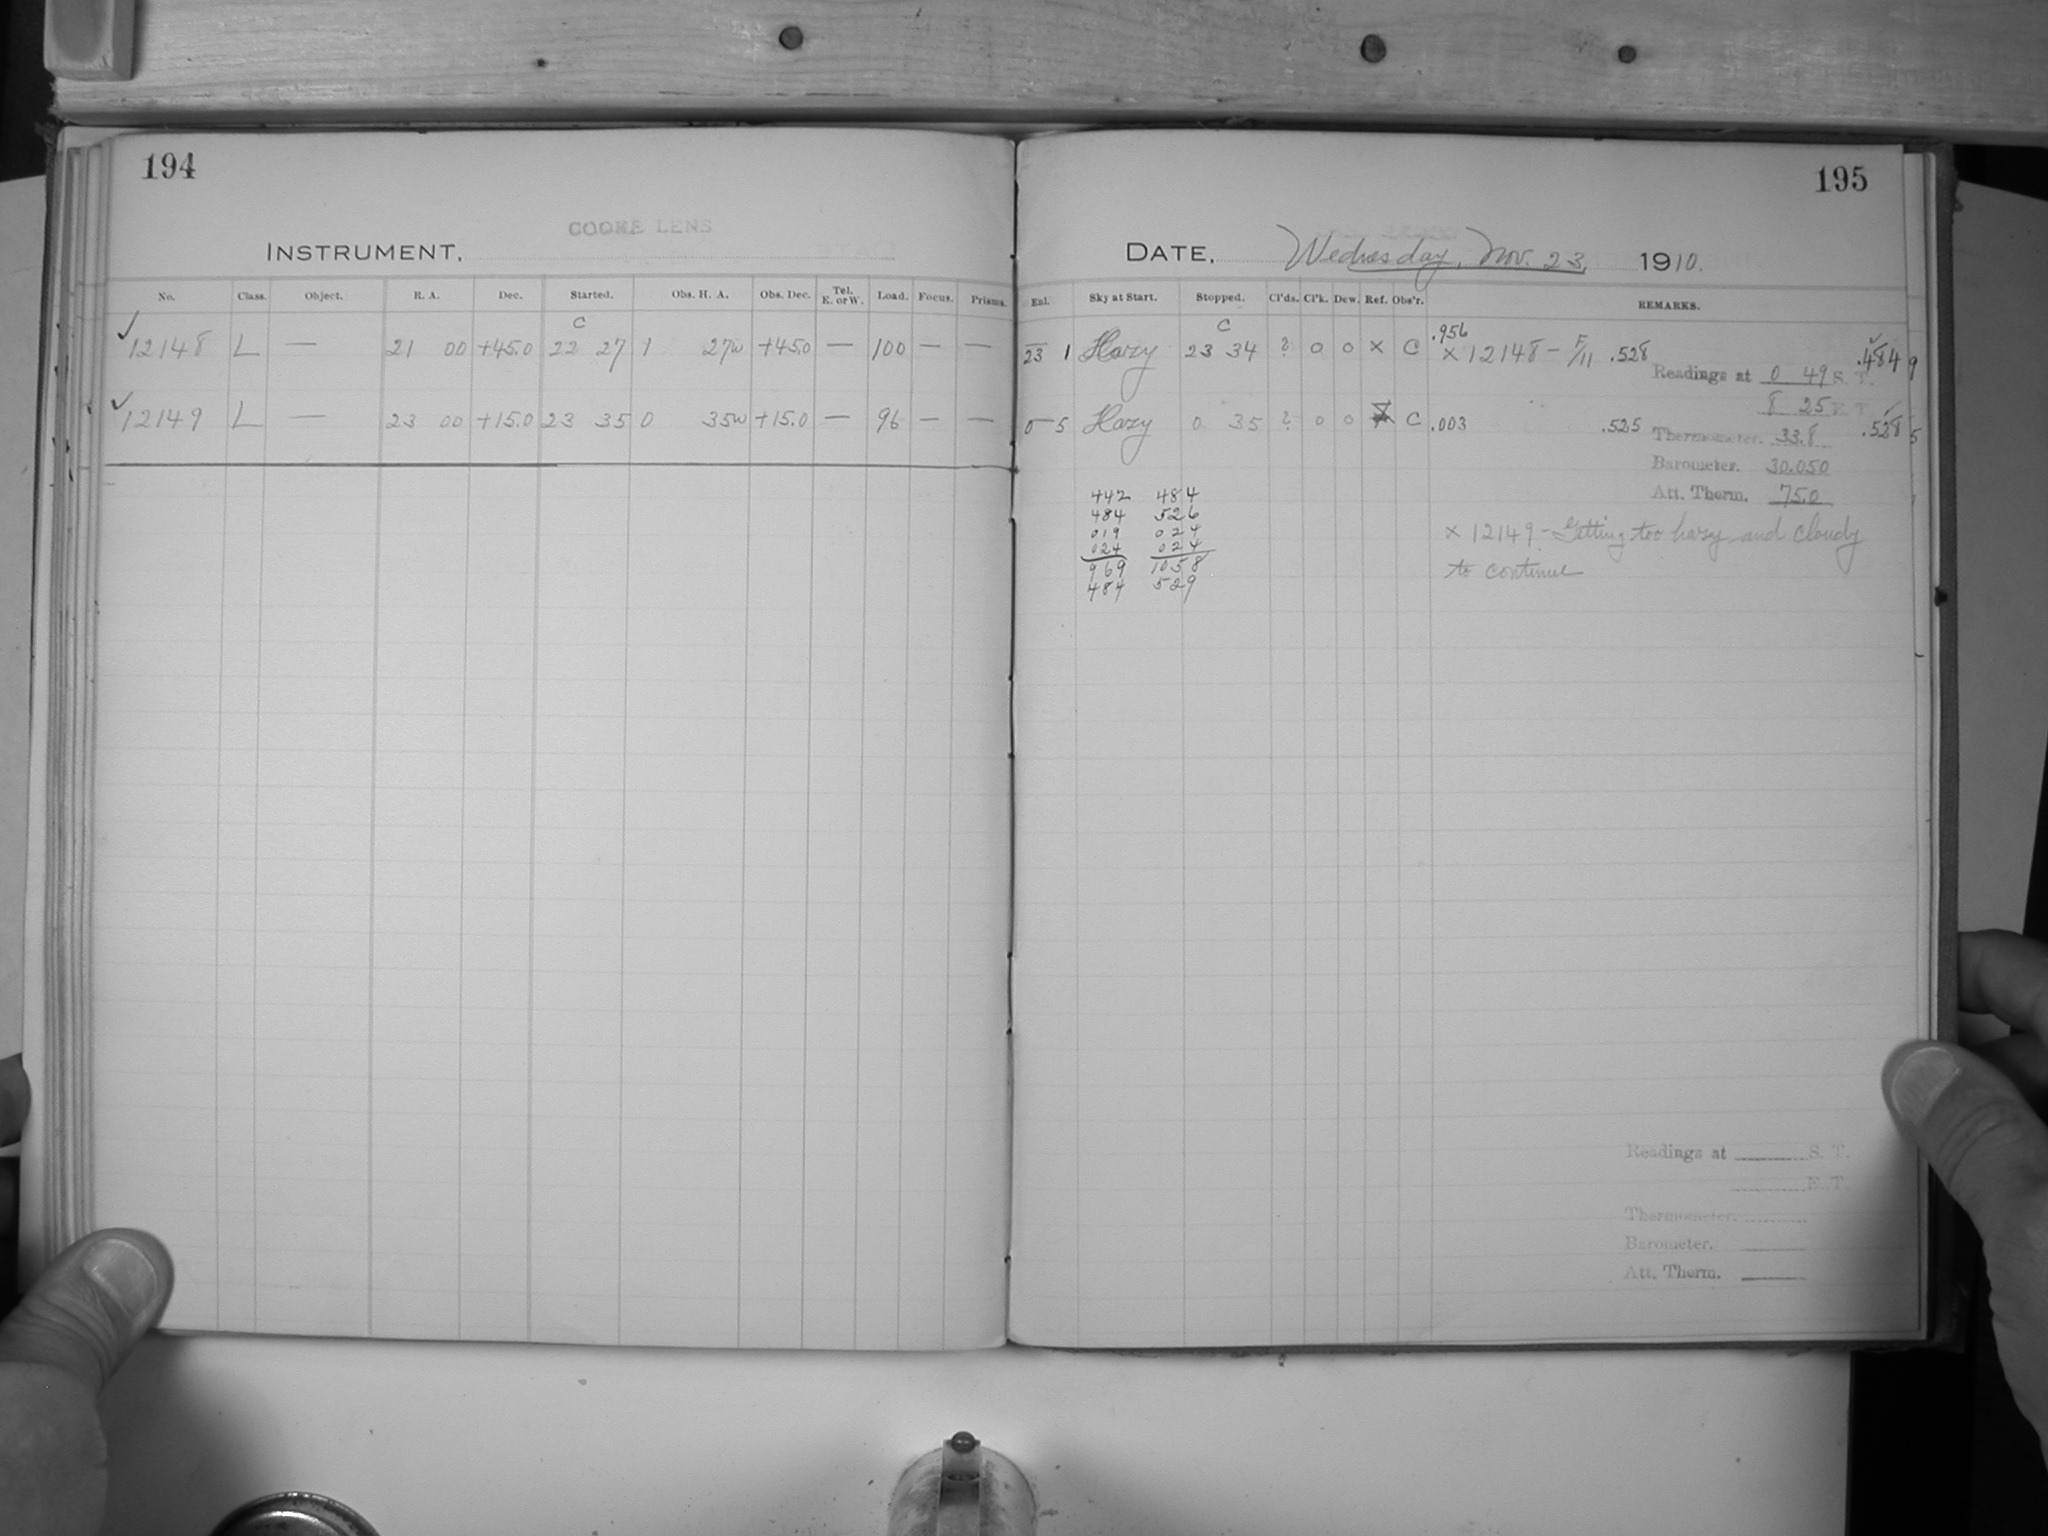 194
COOKE LENS
INSTRUMENT.
No. Class. Object. R. A. Dec. Started. Obs. H. A. Obs. Dec. Tel. E. or W. Load. Focus. Prisms.
C
✓ 12148 L — 21 00 +45.0 22 27 1 27w +45.0 — 100 — —
✓ 12149 L — 23 00 +15.0 23 35 0 35w +15.0 — 96 — —
195
DATE. Wednesday, Nov. 23, 1910.
Exl. Sky at Start. Stopped. Cl'ds. Cl'k. Dew. Ref. Obs'r. REMARKS.
C
23 1 Hazy 23 34 ? 0 0 × C .956 × 12148 - F/11 .528 .484 9
Readings at 0 49 S. T.
8 25 E. T.
0 5 Hazy 0 35 ? 0 0 C .003 .525 .528 5
Thermometer. 33.8
Barometer. 30.050
Att. Therm. 75.0
442 484
484 526
019 024
024 024
969 1058
484 529
× 12149 - Getting too hazy and cloudy
to continue
Readings at S. T.
E. T.
Thermometer.
Barometer.
Att. Therm.